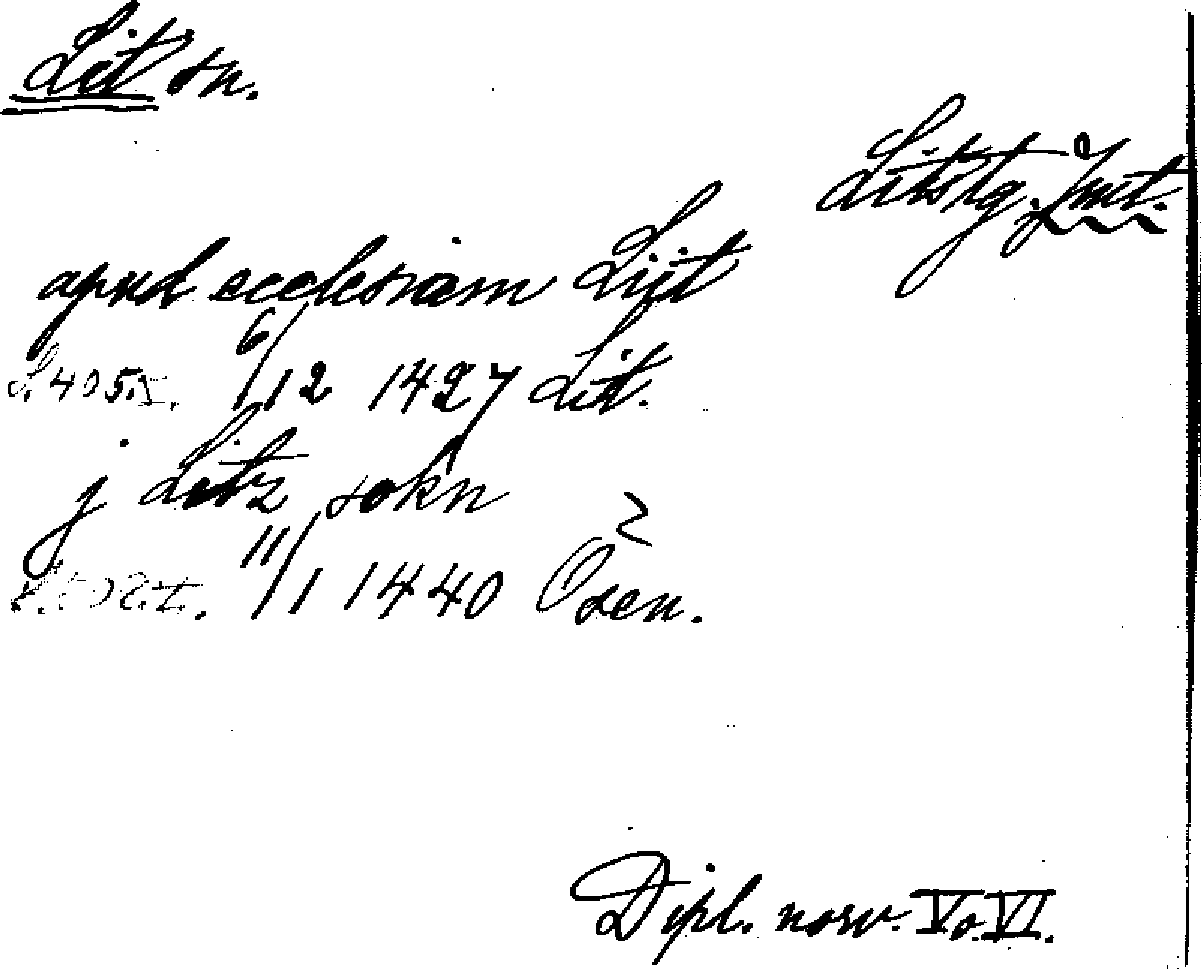 Lit sn.
Litstg. Jmt.
apud ecclesiam Lijt
S. 405. I. 6/12 1427 Lit.
j Litz sokn
11/1 1440 Osen.
Dipl. norv. V o. VI.